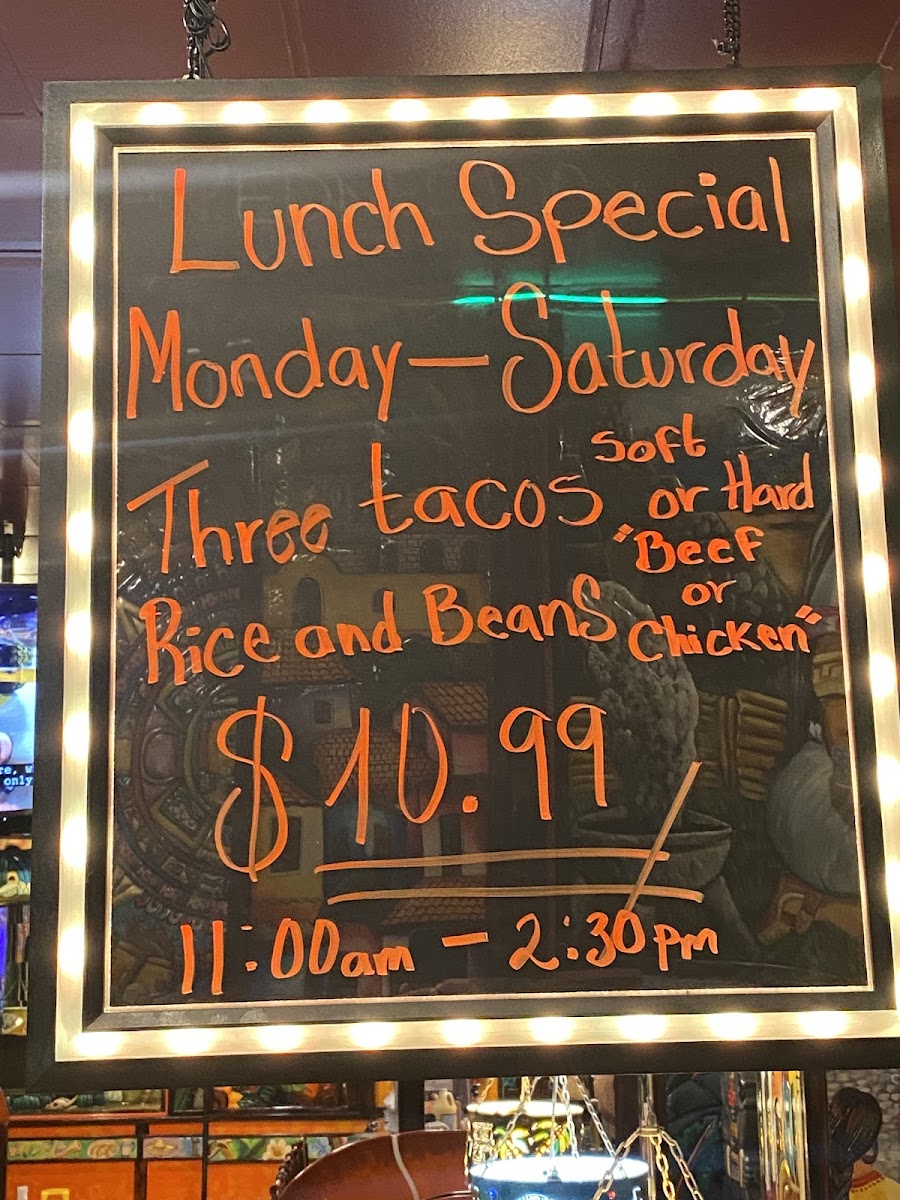 Lunch Special
Monday—Saturday
Three tacos soft
or Hard
"Beef
or
Chicken"
Rice and Beans
$10.99
11:00am - 2:30pm
only